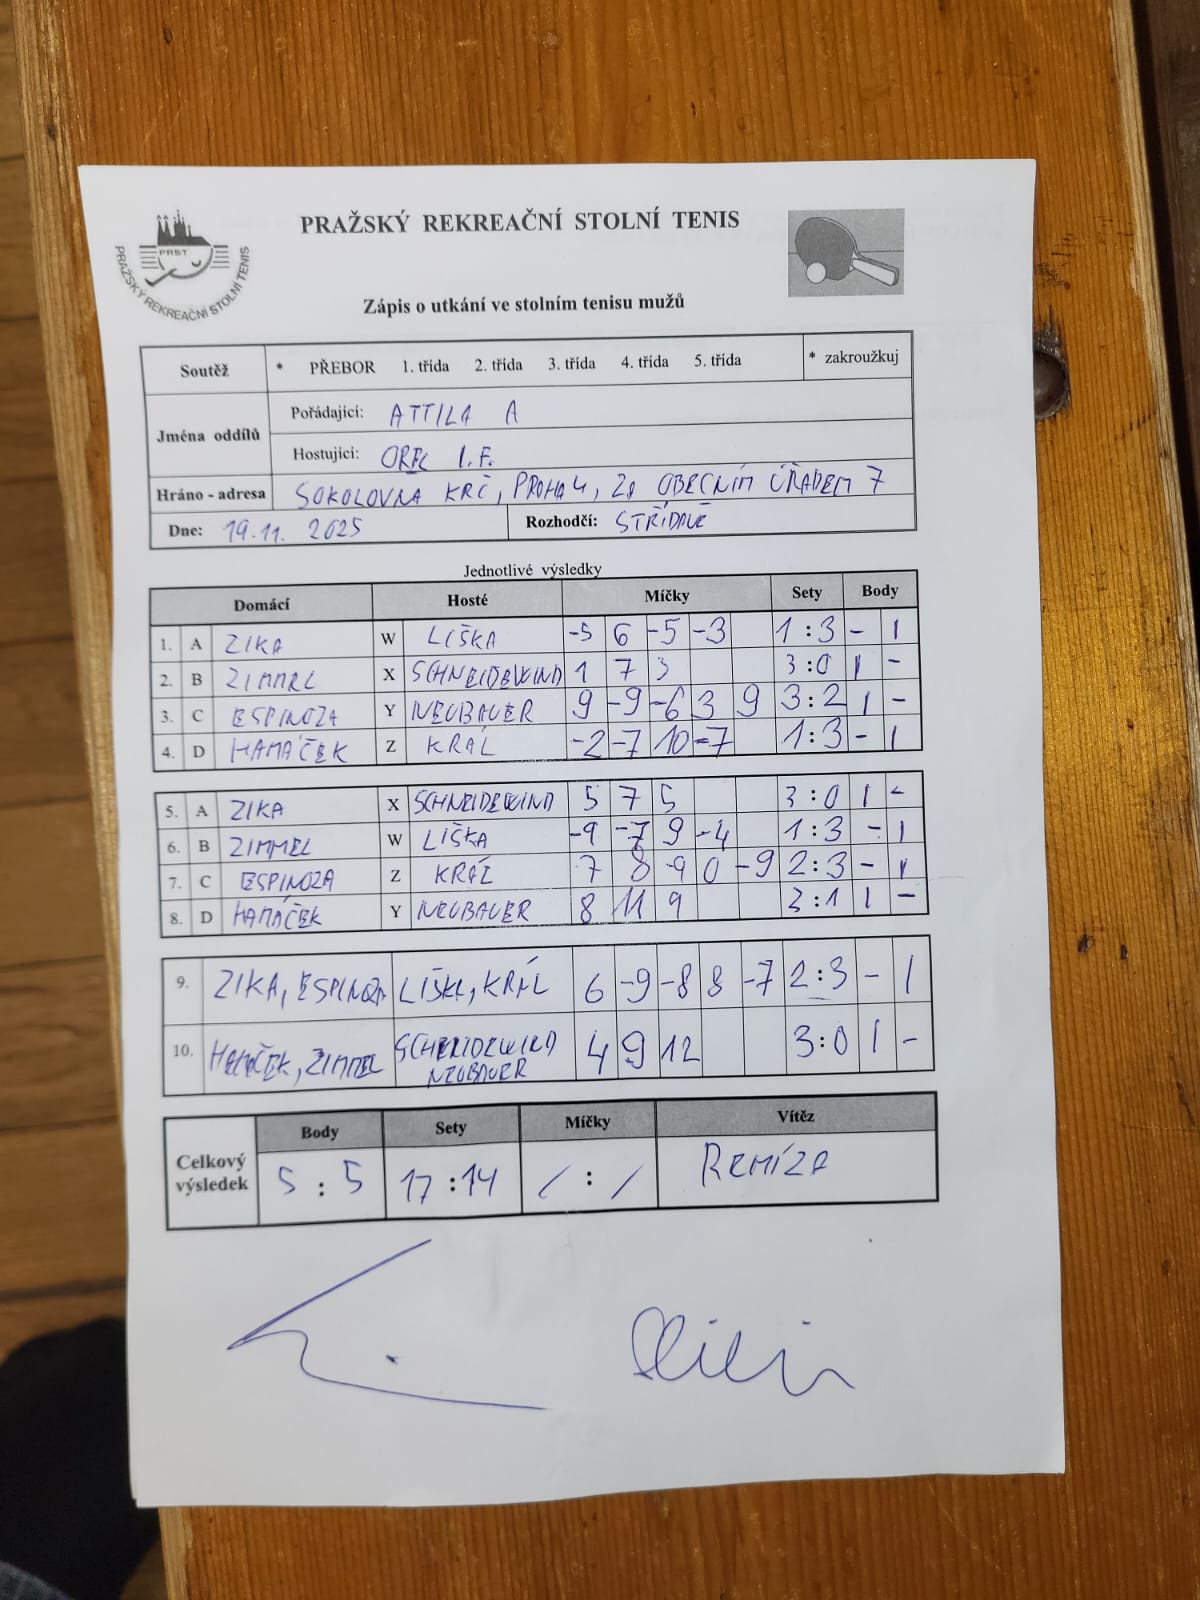 PRAŽSKÝ REKREAČNÍ STOLNÍ TENIS
PRST
PRAŽSKÝ REKREAČNÍ STOLNÍ TENIS
Zápis o utkání ve stolním tenisu mužů
Soutěž * PŘEBOR 1. třída 2. třída 3. třída 4. třída 5. třída * zakroužkuj
Jména oddílů
Pořádající: ATTILA A
Hostující: OREL I.F.
Hráno - adresa SOKOLOVNA KRČ, PRAHA 4, ZA OBECNÍM ÚŘADEM 7
Dne: 19.11. 2025 Rozhodčí: STŘÍDAVĚ
Jednotlivé výsledky
Domácí Hosté Míčky Sety Body
1. A ZIKA W LIŠKA -5 6 -5 -3 1:3 - 1
2. B ZIMMEL X SCHNEIDEWIND 1 7 3 3:0 1 -
3. C ESPINOZA Y NEUBAUER 9 -9 -6 3 9 3:2 1 -
4. D HAMÁČEK Z KRÁL -2 -7 10 -7 1:3 - 1
5. A ZIKA X SCHNEIDEWIND 5 7 5 3:0 1 -
6. B ZIMMEL W LIŠKA -9 -7 9 -4 1:3 - 1
7. C ESPINOZA Z KRÁL 7 8 -9 0 -9 2:3 - 1
8. D HAMÁČEK Y NEUBAUER 8 11 9 3:1 1 -
9. ZIKA, ESPINOZA LIŠKA, KRÁL 6 -9 -8 8 -7 2:3 - 1
10. HAMÁČEK, ZIMMEL SCHNEIDEWIND NEUBAUER 4 9 12 3:0 1 -
Body Sety Míčky Vítěz
Celkový výsledek 5 : 5 17 : 14 / : / REMÍZA